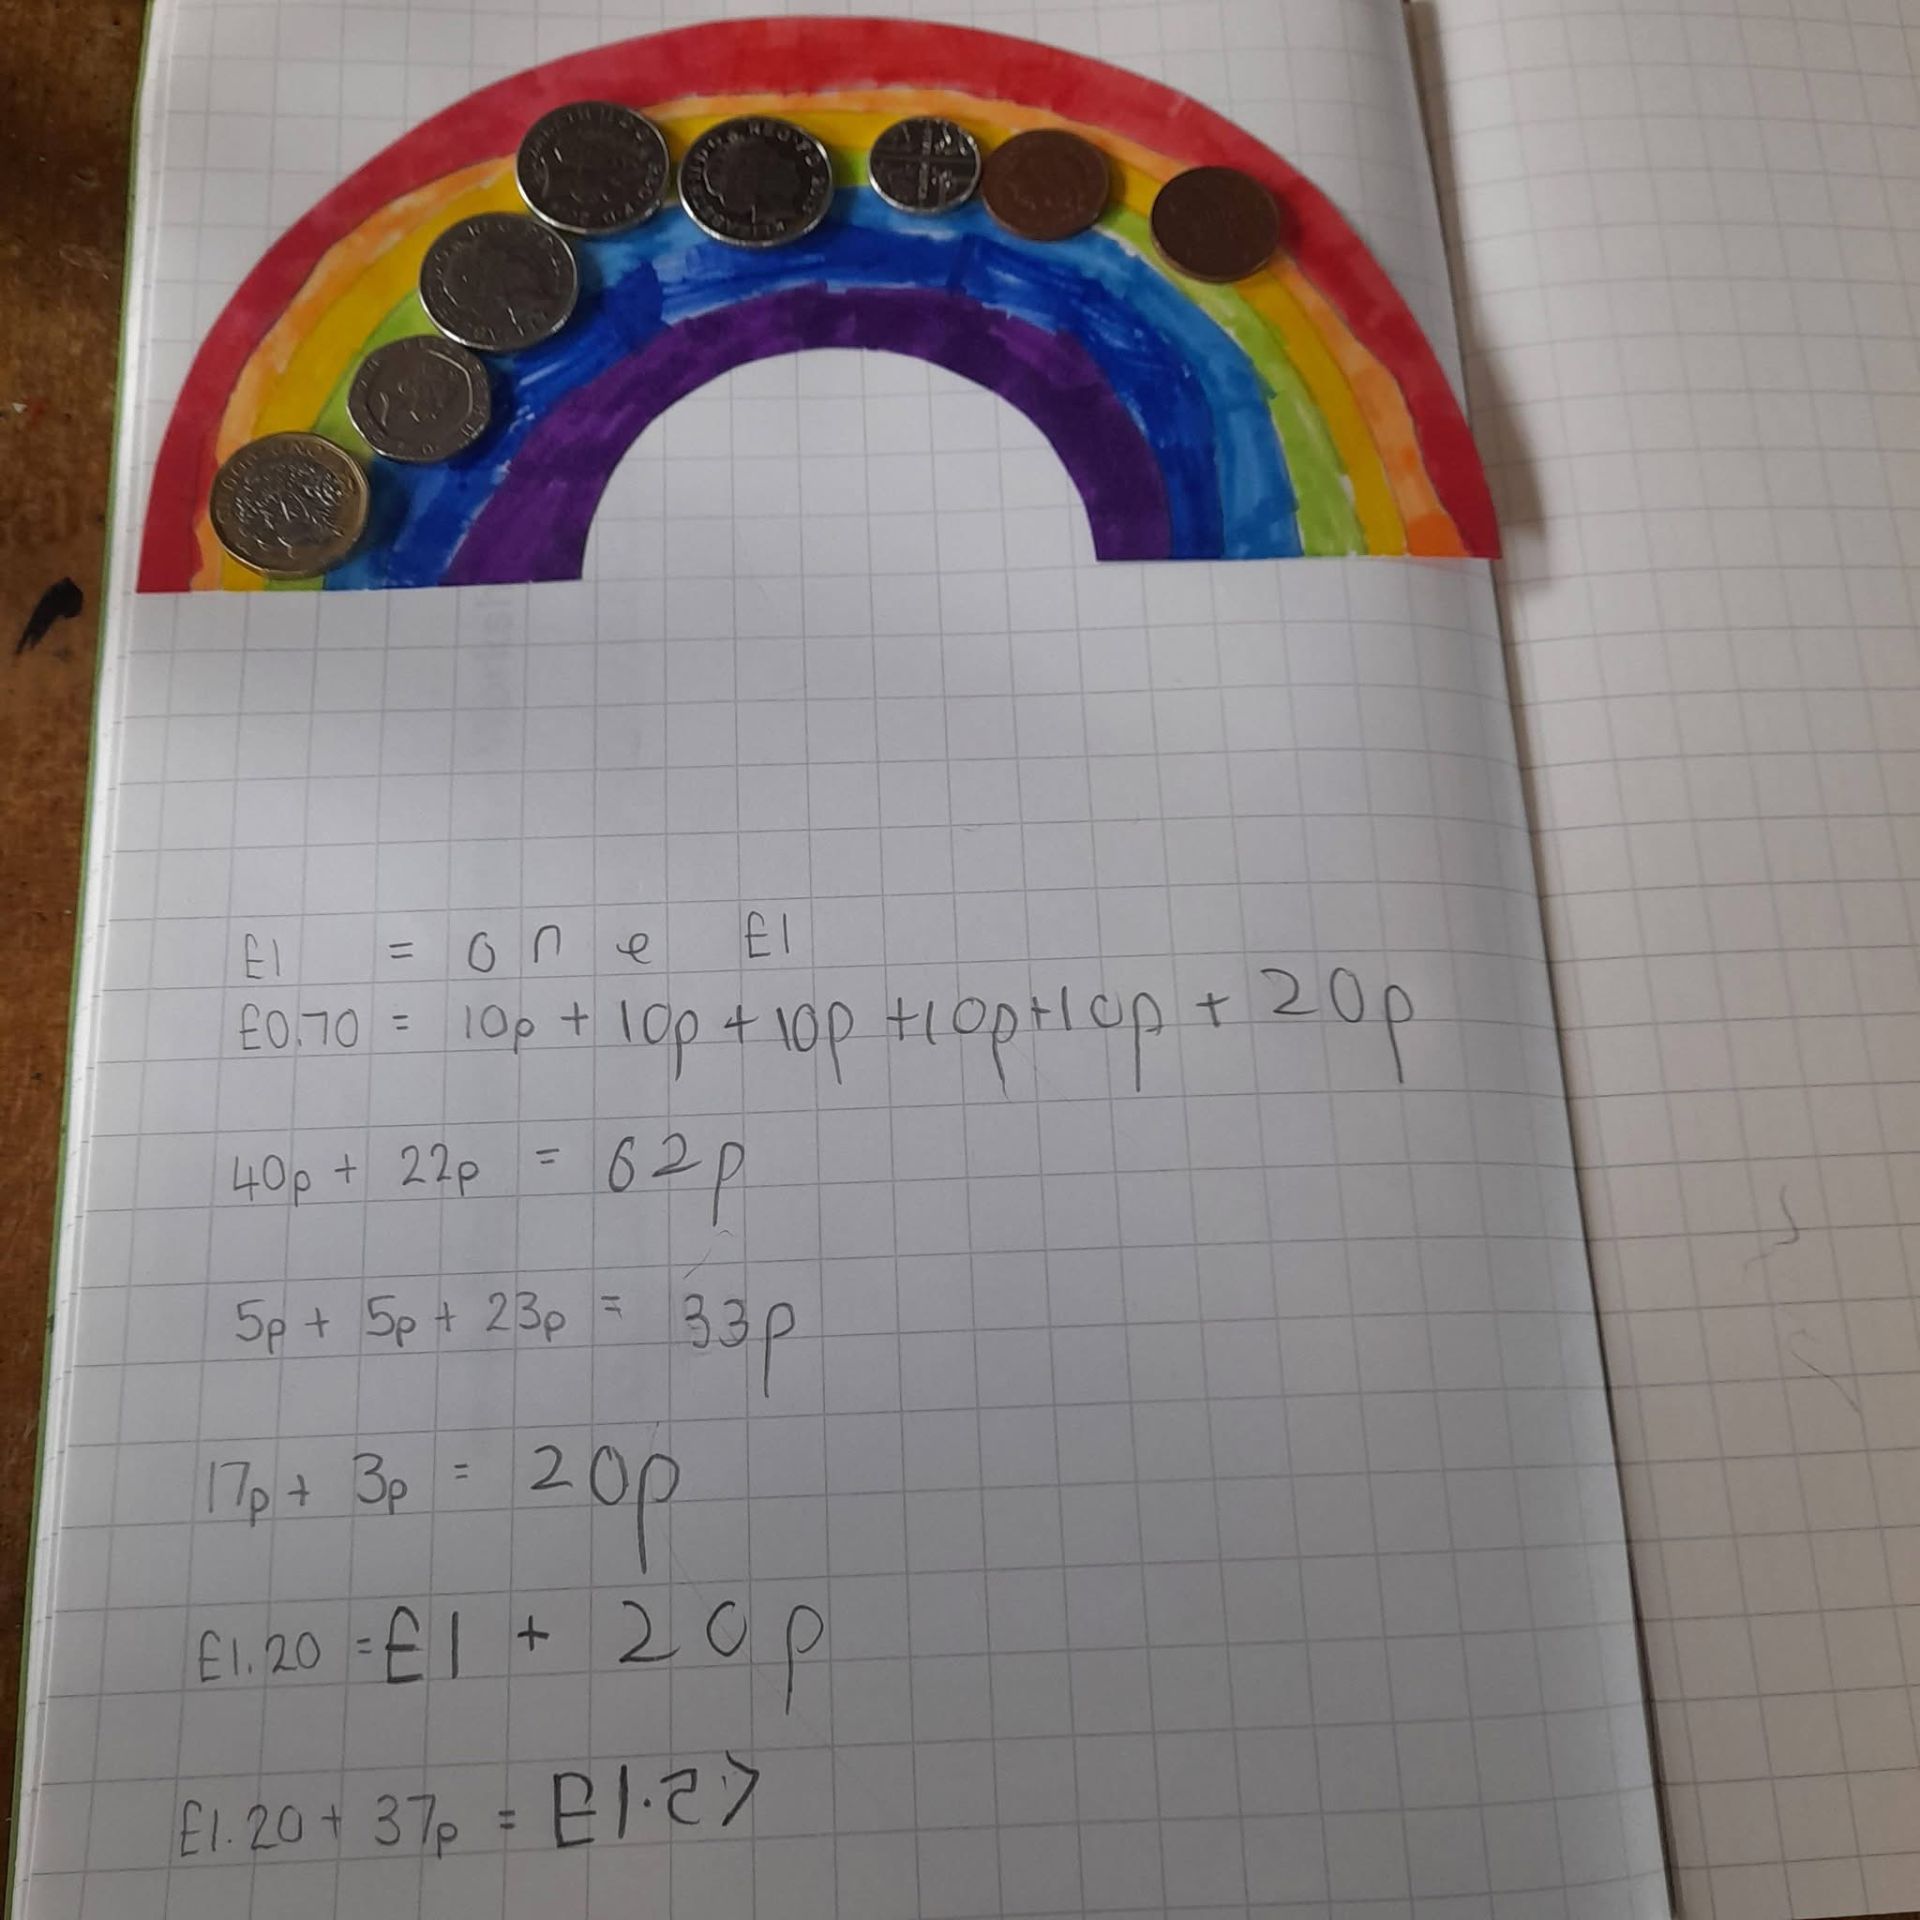 £1 = one £1
£0.70 = 10p + 10p + 10p + 10p + 10p + 20p
40p + 22p = 62p
5p + 5p + 23p = 33p
17p + 3p = 20p
£1.20 = £1 + 20p
£1.20 + 37p =